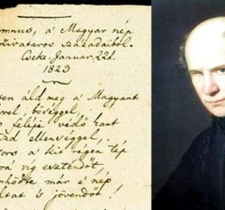 ymnus, a Magyar nép
zivataros századaiból.
Cseke Januar. 22d.
1823
ten áld meg a Magyart
vel, bőséggel,
feléje védő kart
zd ellenséggel,
sors a kit régen tép
rá víg esztendőt
nhődte már e nép
ltat s jövendőt!